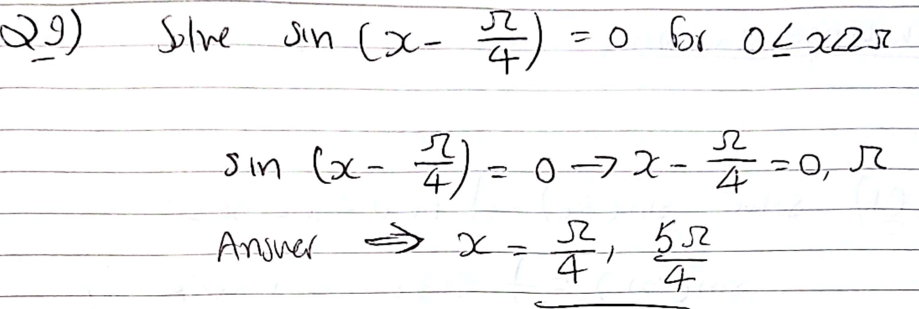 Q9) Solve sin (x - π/4) = 0 for 0 ≤ x < 2π
sin (x - π/4) = 0 → x - π/4 = 0, π
Answer ⇒ x = π/4, 5π/4